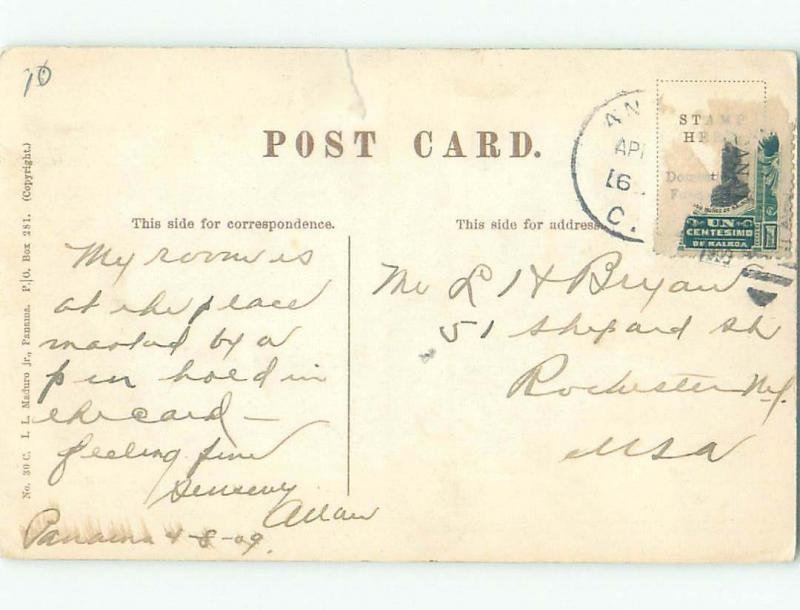 10
POST CARD.
This side for correspondence.
This side for address
No. 30 C. I. L. Maduro jr., Panama. P.O. Box 281. (Copyright.)
STAMP
HERE
Domestic
AN
APR
16
C.
UN
CENTESIMO
DE BALBOA
My room is
at the place
marked by a
pin hole in
the card —
feeling fine
Allan
Panama 4-8-09.
Mr L H Bryan
51 Shepard St
Rochester NY
USA